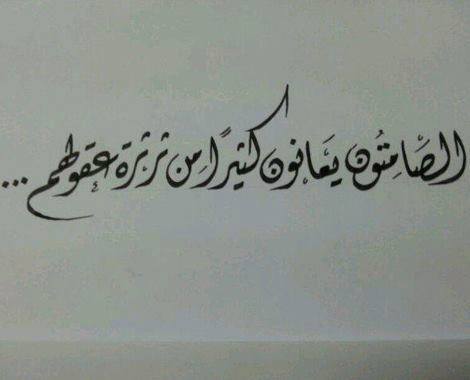 الصَّامِتُون يَعَانون كثيرًا مِن ثرثرة عقولهم ...